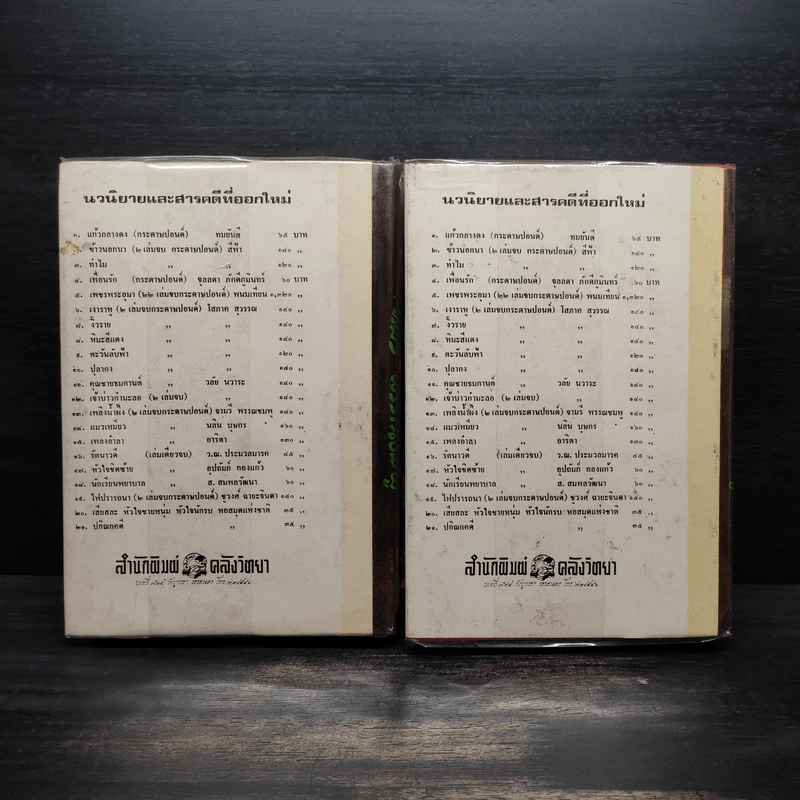 นวนิยายและสารคดีที่ออกใหม่
๑. แก้วกลางดง (กระดาษปอนด์) ทมยันตี ๖๕ บาท
๒. ข้าวนอกนา (๒ เล่มจบ กระดาษปอนด์) สีฟ้า ๑๔๐ ,,
๓. ทำไม ,, ,, ๑๒๐ ,,
๔. เพื่อนรัก (กระดาษปอนด์) จุลลดา ภักดีภูมินทร์ ๖๐ บาท
๕. เพชรพระอุมา (๒๒ เล่มจบกระดาษปอนด์) พนมเทียน ๑,๓๒๐ ,,
๖. เงาราหู (๒ เล่มจบกระดาษปอนด์) โสภาค สุวรรณ ๑๔๐ ,,
๗. งิ้วราย ,, ,, ๑๔๐ ,,
๘. หิมะสีแดง ,, ,, ๑๔๐ ,,
๙. ตะวันลับฟ้า ,, ,, ๑๒๐ ,,
๑๐. ปุลากง ,, ,, ๑๔๐ ,,
๑๑. คุณชายธมกานต์ ,, วลัย นวาระ ๑๔๐ ,,
๑๒. เจ้าบ่าวกำมะลอ (๒ เล่มจบ) ,, ๑๔๐ ,,
๑๓. เพลิงน้ำผึ้ง (๒ เล่มจบกระดาษปอนด์) จามรี พรรณชมพู ๑๔๐ ,,
๑๔. แมวเหมียว ,, นลิน บุษกร ๑๖๐ ,,
๑๕. เพลงอำลา ,, อาริตา ๑๓๐ ,,
๑๖. รัตนาวดี (เล่มเดียวจบ) ว.ณ. ประมวลมารค ๔๕ ,,
๑๗. หัวใจชิดซ้าย ,, อุปถัมภ์ กองแก้ว ๖๐ ,,
๑๘. นักเรียนพยาบาล ,, ส. สมพลวัฒนา ๖๐ ,,
๑๙. ไฟปรารถนา (๒ เล่มจบกระดาษปอนด์) ชูวงศ์ ฉายะจินดา ๑๔๐ ,,
๒๐. เสียสละ หัวใจชายหนุ่ม หัวใจนักรบ หอสมุดแห่งชาติ ๓๕ ,,
๒๑. ปกิณกคดี ,, ๓๕ ,,
สำนักพิมพ์ คลังวิทยา
นวนิยายและสารคดีที่ออกใหม่
๑. แก้วกลางดง (กระดาษปอนด์) ทมยันตี ๖๕ บาท
๒. ข้าวนอกนา (๒ เล่มจบ กระดาษปอนด์) สีฟ้า ๑๔๐ ,,
๓. ทำไม ,, ,, ๑๒๐ ,,
๔. เพื่อนรัก (กระดาษปอนด์) จุลลดา ภักดีภูมินทร์ ๖๐ บาท
๕. เพชรพระอุมา (๒๒ เล่มจบกระดาษปอนด์) พนมเทียน ๑,๓๒๐ ,,
๖. เงาราหู (๒ เล่มจบกระดาษปอนด์) โสภาค สุวรรณ ๑๔๐ ,,
๗. งิ้วราย ,, ,, ๑๔๐ ,,
๘. หิมะสีแดง ,, ,, ๑๔๐ ,,
๙. ตะวันลับฟ้า ,, ,, ๑๒๐ ,,
๑๐. ปุลากง ,, ,, ๑๔๐ ,,
๑๑. คุณชายธมกานต์ ,, วลัย นวาระ ๑๔๐ ,,
๑๒. เจ้าบ่าวกำมะลอ (๒ เล่มจบ) ,, ๑๔๐ ,,
๑๓. เพลิงน้ำผึ้ง (๒ เล่มจบกระดาษปอนด์) จามรี พรรณชมพู ๑๔๐ ,,
๑๔. แมวเหมียว ,, นลิน บุษกร ๑๖๐ ,,
๑๕. เพลงอำลา ,, อาริตา ๑๓๐ ,,
๑๖. รัตนาวดี (เล่มเดียวจบ) ว.ณ. ประมวลมารค ๔๕ ,,
๑๗. หัวใจชิดซ้าย ,, อุปถัมภ์ กองแก้ว ๖๐ ,,
๑๘. นักเรียนพยาบาล ,, ส. สมพลวัฒนา ๖๐ ,,
๑๙. ไฟปรารถนา (๒ เล่มจบกระดาษปอนด์) ชูวงศ์ ฉายะจินดา ๑๔๐ ,,
๒๐. เสียสละ หัวใจชายหนุ่ม หัวใจนักรบ หอสมุดแห่งชาติ ๓๕ ,,
๒๑. ปกิณกคดี ,, ๓๕ ,,
สำนักพิมพ์ คลังวิทยา